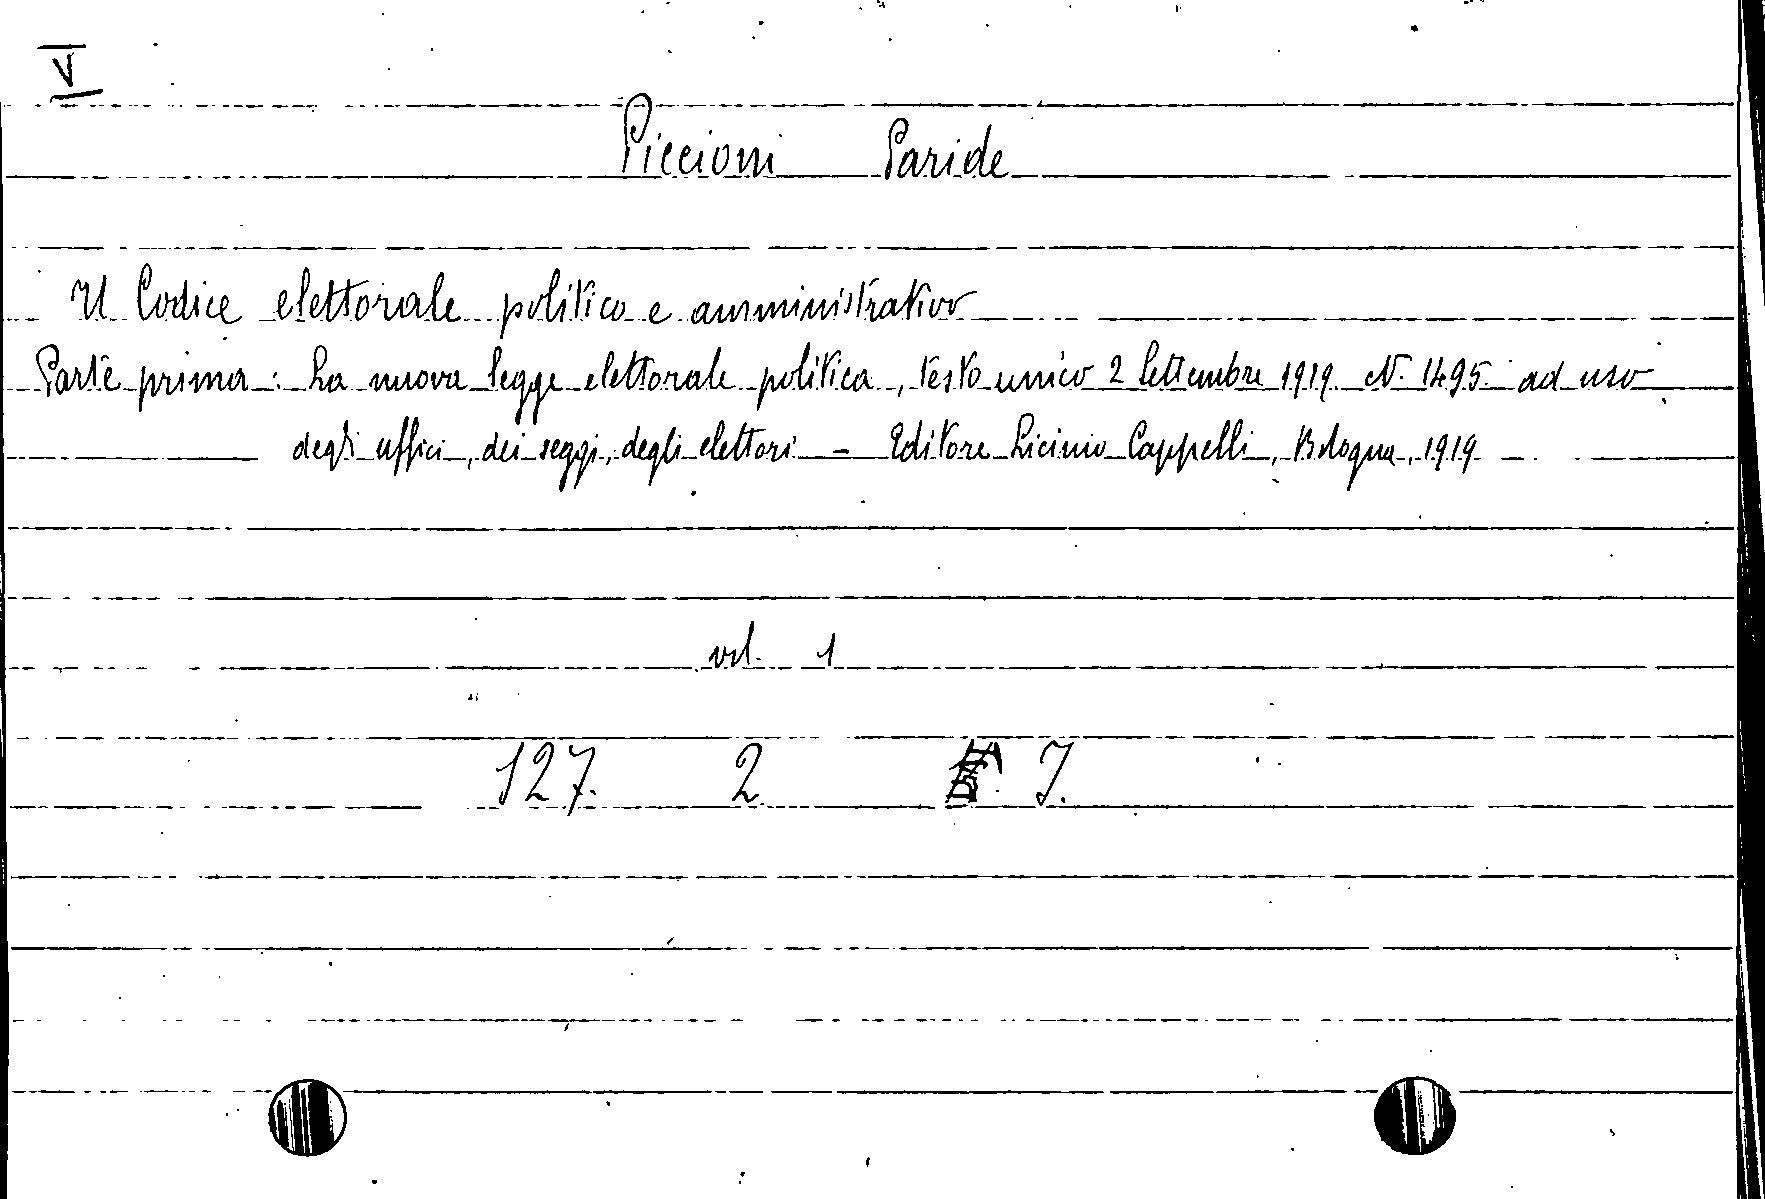 V
Piccioni Paride
Il Codice elettorale politico e amministrativo
Parte prima: La nuova legge elettorale politica, testo unico 2 Settembre 1919 N. 1495 ad uso
degli uffici, dei seggi, degli elettori - Editore Licinio Cappelli, Bologna, 1919
vol. 1
127. 2 I.